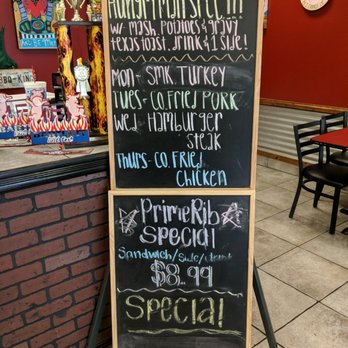 HungryMan Special
w/ mash potatoes & gravy
texas toast, drink & 1 side!
Mon- SMK. Turkey
Tues- Co. Fried Pork
Wed- Hamburger
Steak
Thurs- Co. Fried
Chicken
Prime Rib
Special
Sandwich/Side/drink
$8.99
Special